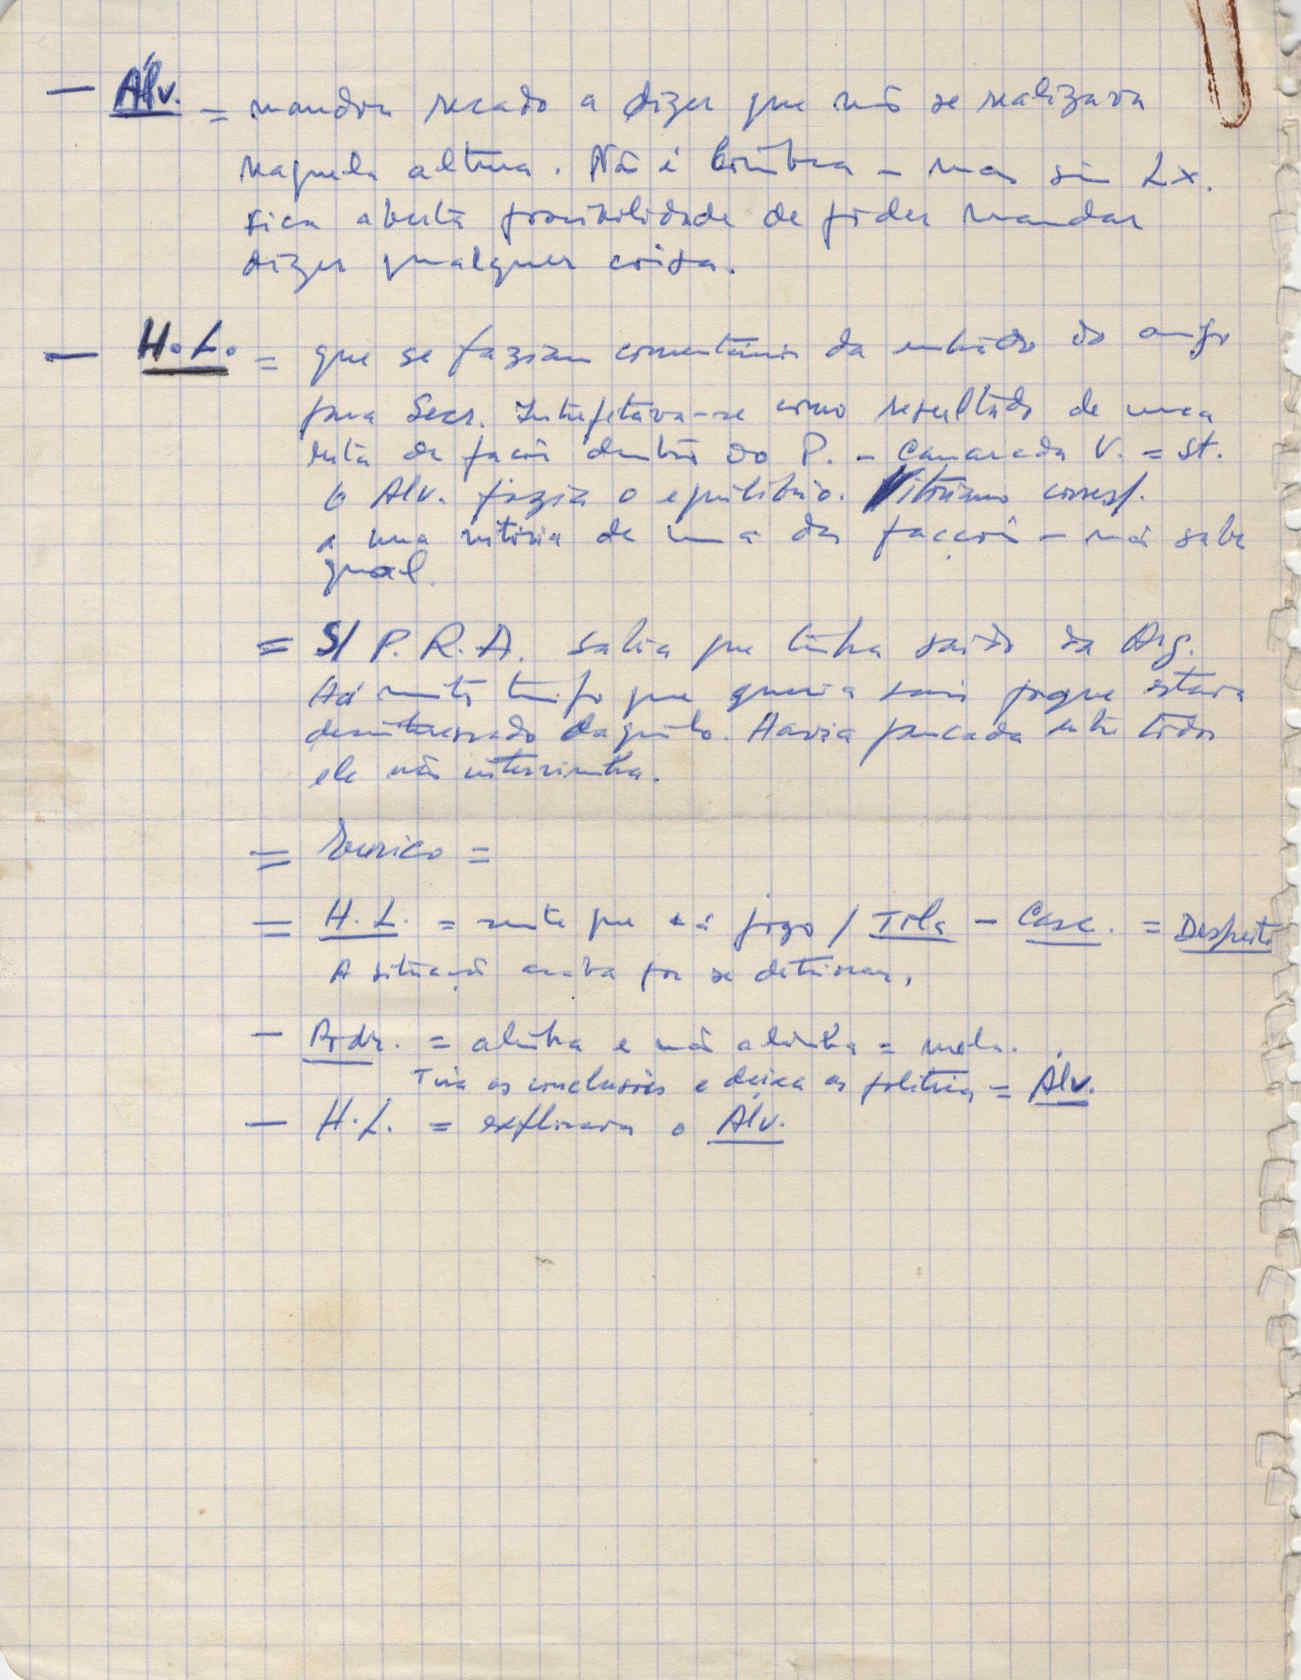 — Álv. = mandou recado a dizer que não se realizava
naquela altura. Não é Coimbra – mas sim Lx.
Fica aberta possibilidade de poder mandar
dizer qualquer coisa.
— H. L. = que se faziam comentários da entrada do amigo
para Secr. Interpretava-se como resultado de uma
luta de facções dentro do P. – Camarada V. = St.
O Alv. fazia o equilíbrio. Vitoriano corresp.
a uma vitória de uma das facções – não sabe
qual.
= S/ P. R. A. sabia que tinha saído da Org.
Há muito tempo que queria sair porque estava
desinteressado daquilo. Havia pancada entre todos
ele não intervinha.
= Eurico =
= H. L. = sente que há jogo / Tola – Casc. = Despeito
A situação acaba por se deteriorar,
– Rodr. = alinha e não alinha = mola.
Tira as conclusões e deixa as política = Álv.
— H. L. = explicava o Álv.